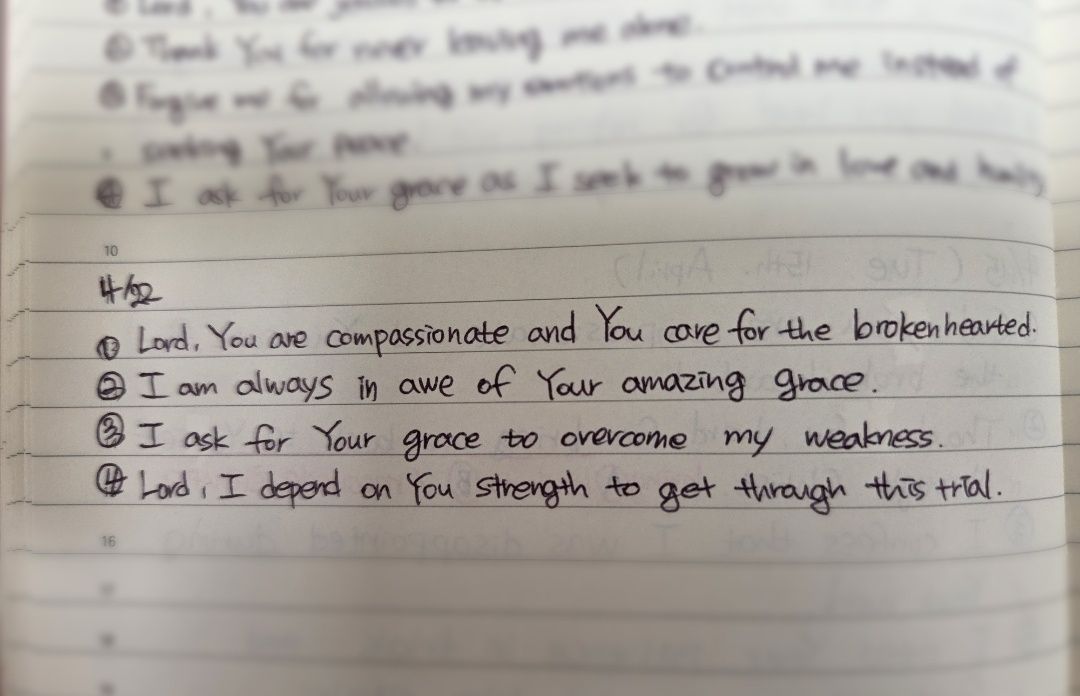 Thank You for never leaving me alone.
Forgive me for allowing my emotions to control me instead of
seeking Your
④ I ask for Your grace as I seek to grow in love and
10
4/22
① Lord, You are compassionate and You care for the brokenhearted.
② I am always in awe of Your amazing grace.
③ I ask for Your grace to overcome my weakness.
④ Lord, I depend on You strength to get through this trial.
16